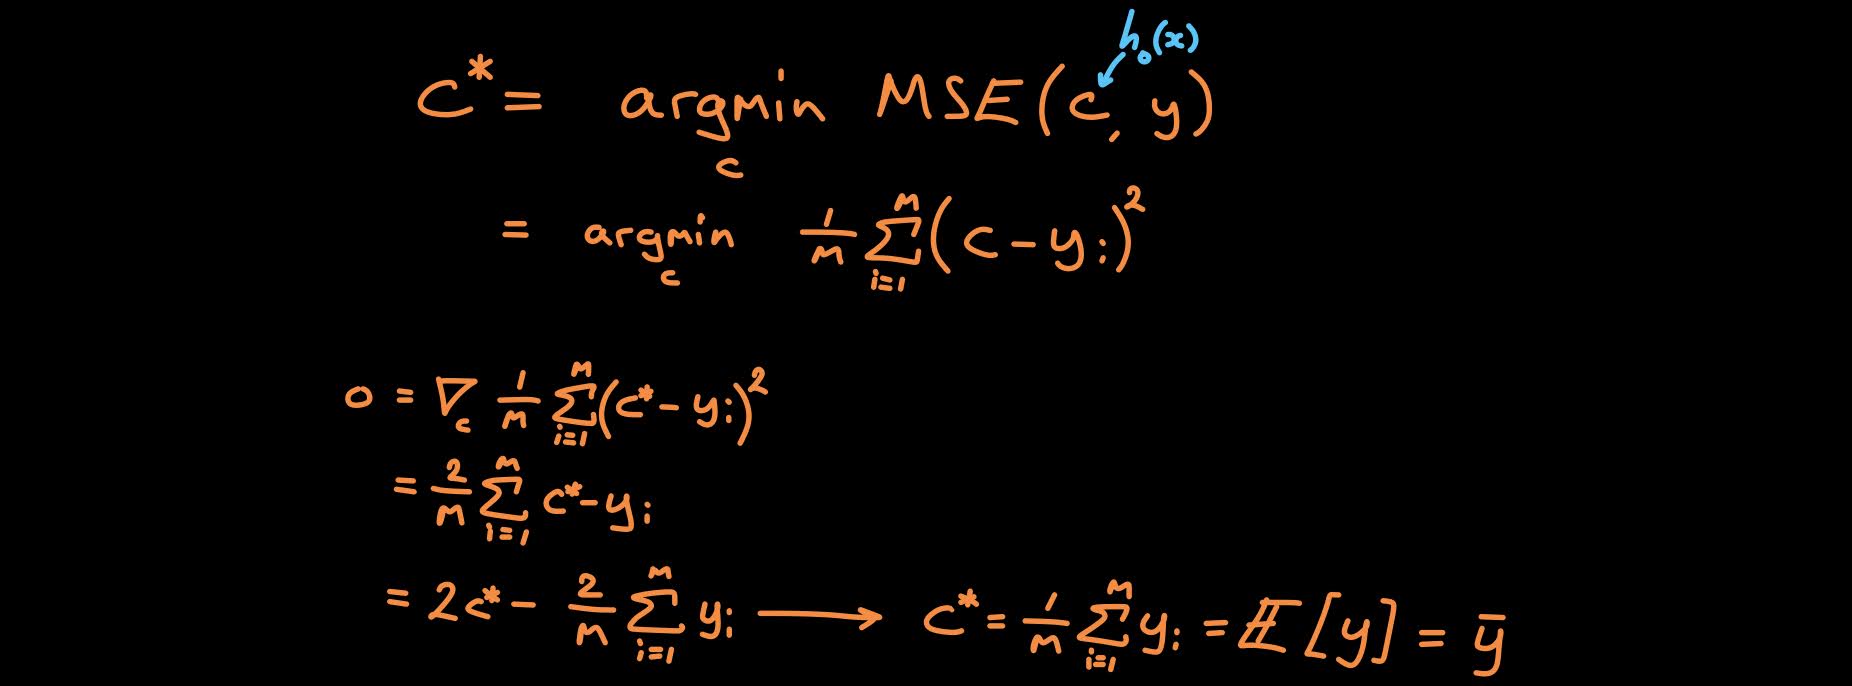 h₀(x)
c* = argmin_c MSE(c, y)
= argmin_c 1/m ∑_{i=1}^{m} (c - y_i)²
0 = ∇_c 1/m ∑_{i=1}^{m} (c* - y_i)²
= 2/m ∑_{i=1}^{m} c* - y_i
= 2c* - 2/m ∑_{i=1}^{m} y_i ⟶ c* = 1/m ∑_{i=1}^{m} y_i = 𝔼[y] = ȳ